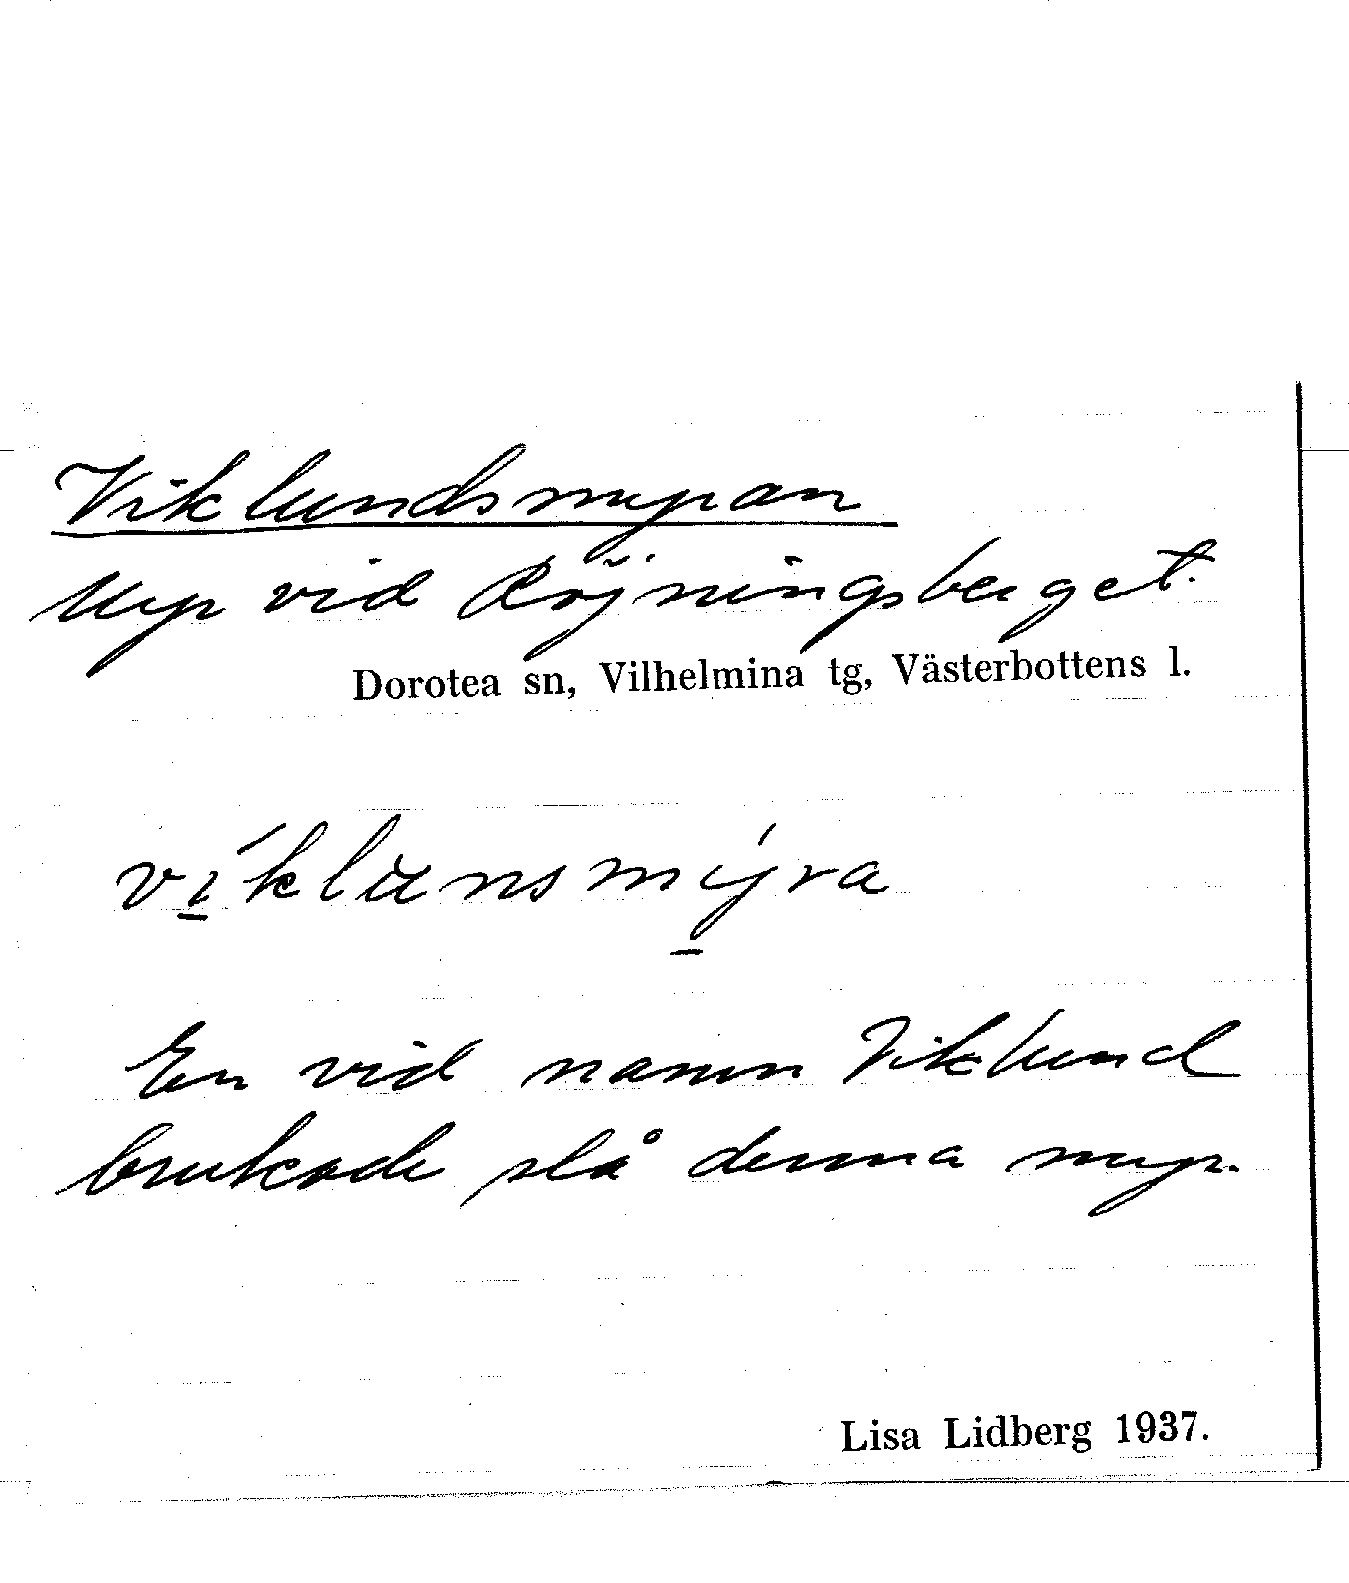 Viklundsmyran
Myr vid Röjningsberget.
Dorotea sn, Vilhelmina tg, Västerbottens l.
víklunsmýra
En vid namn Viklund
brukade slå denna myr.
Lisa Lidberg 1937.